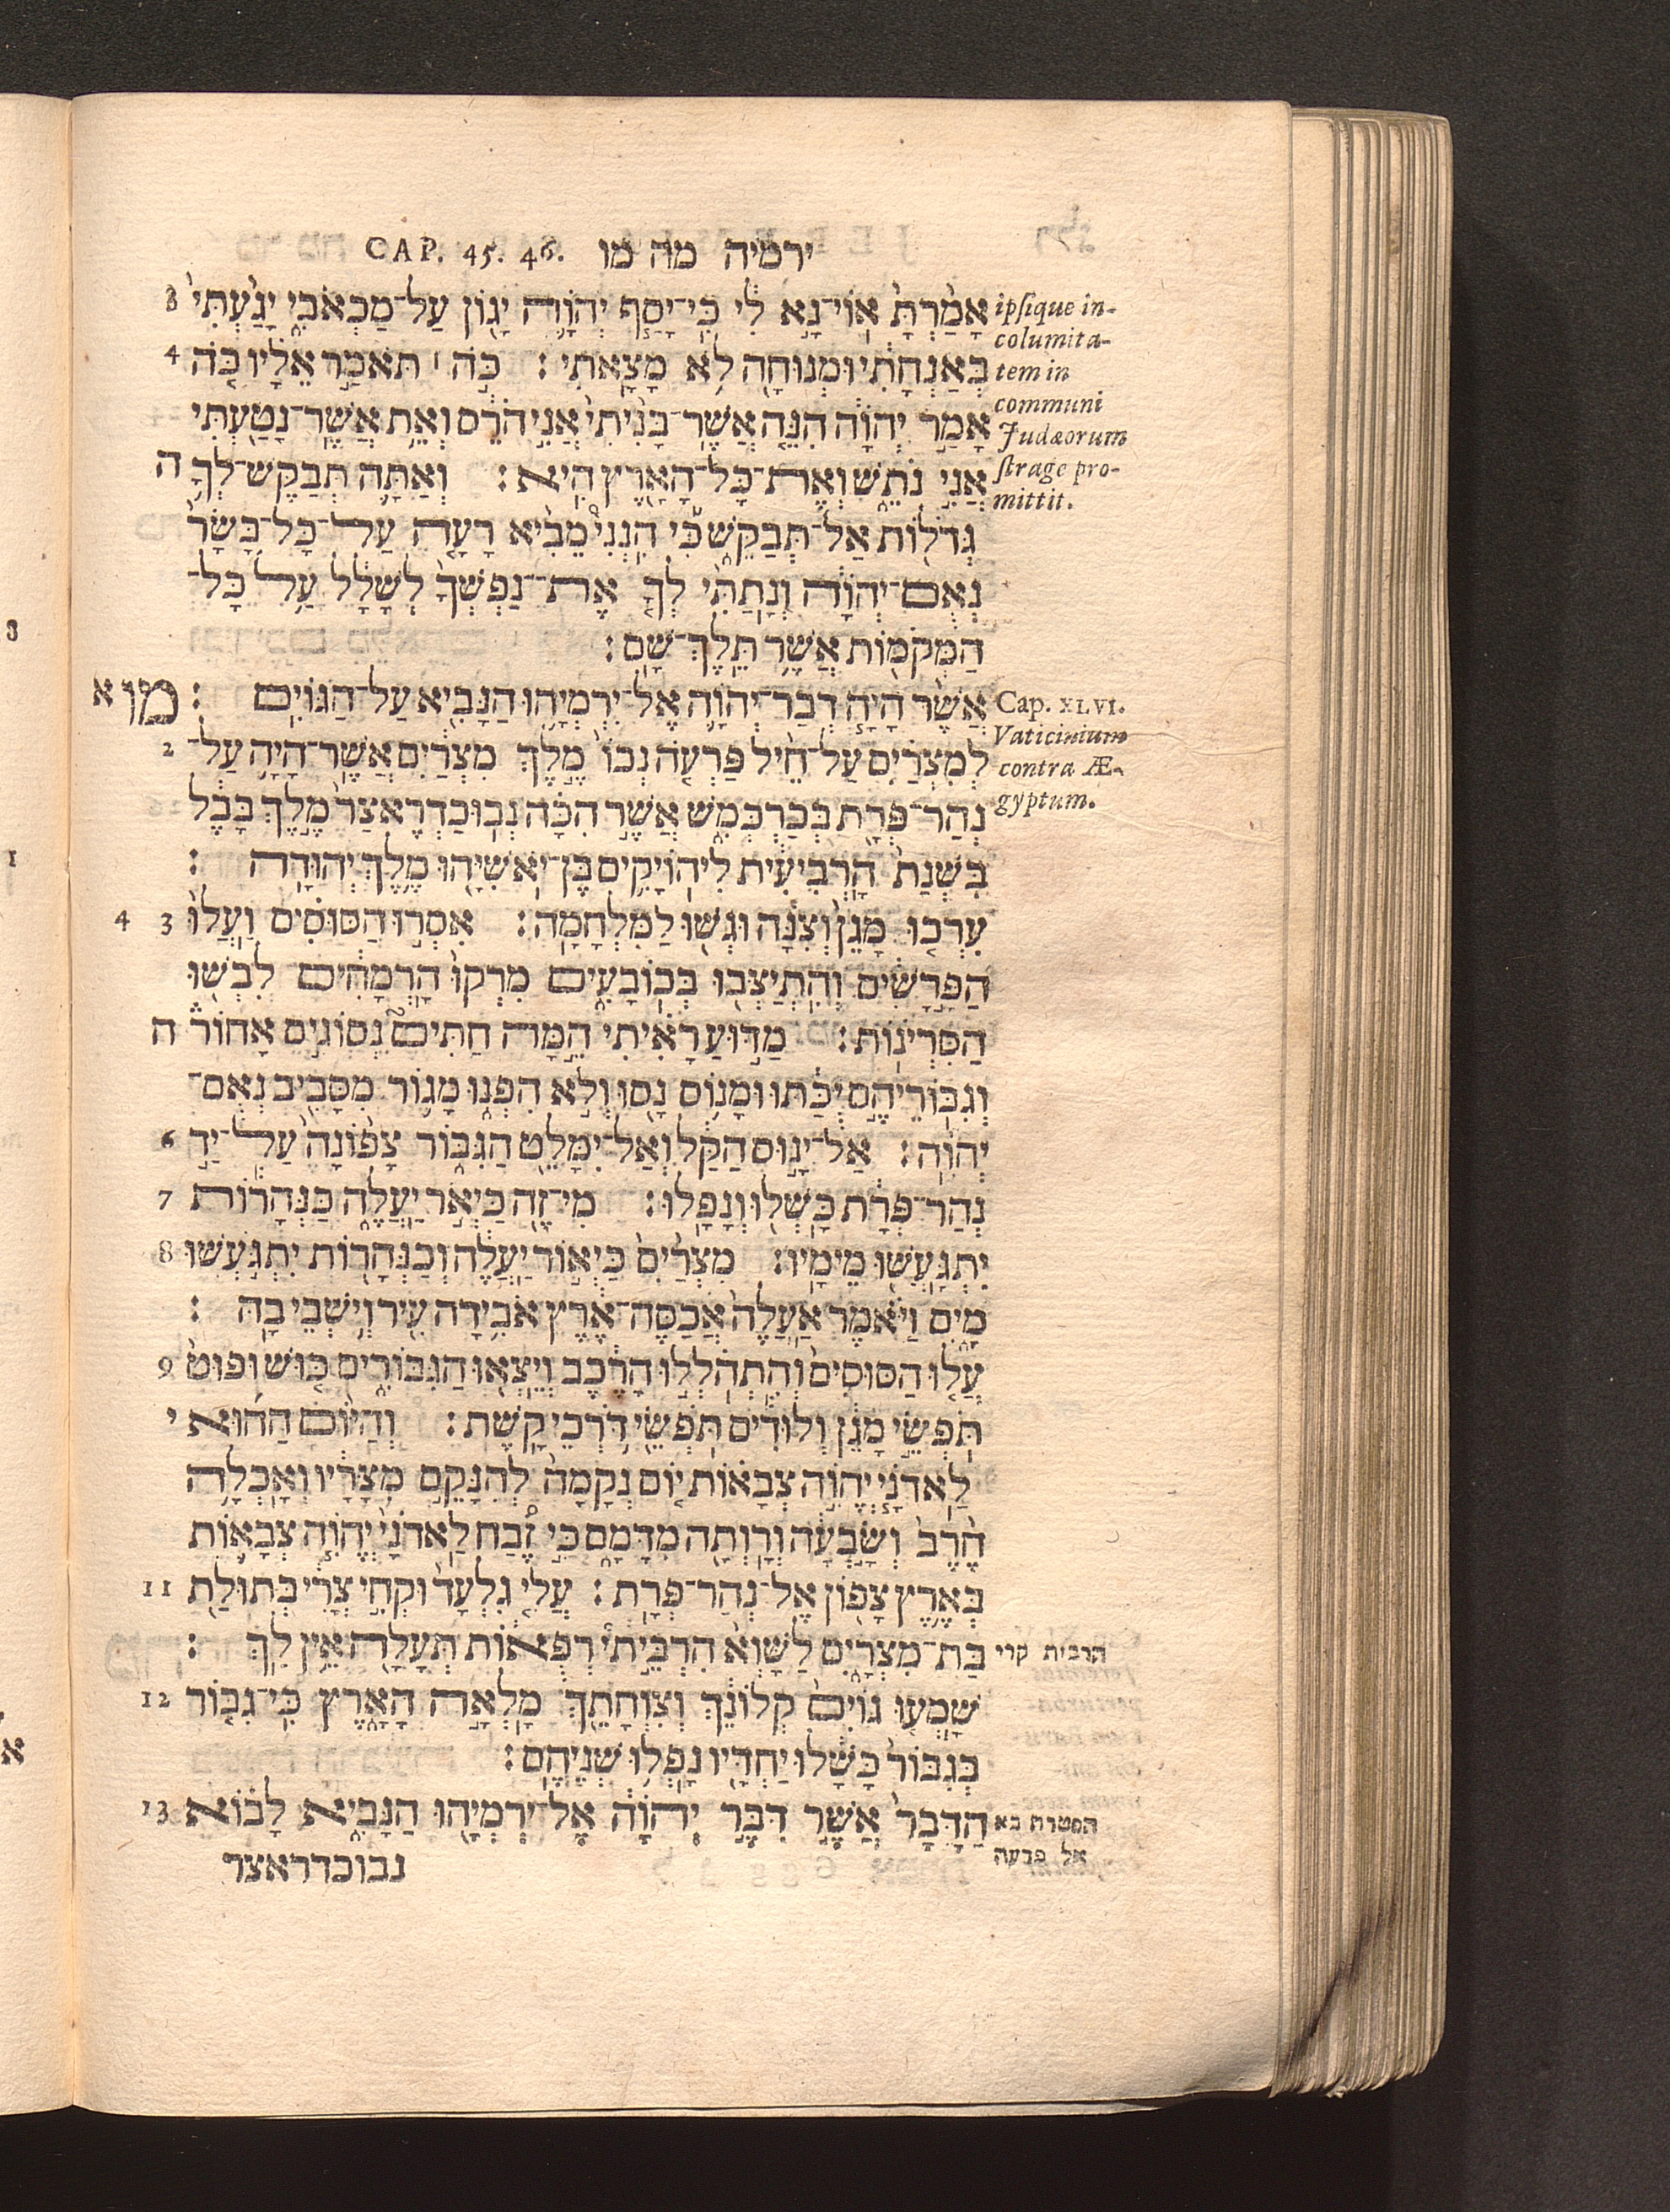 ירמיה מה מו CAP. 45. 46.
אָמַ֙רְתָּ֙ אֽוֹי־נָ֣א לִ֔י כִּֽי־יָסַ֧ף יְהוָ֛ה יָג֖וֹן עַל־מַכְאֹבִ֑י יָגַ֙עְתִּי֙ 3
בְּאַנְחָתִ֔י וּמְנוּחָ֖ה לֹ֥א מָצָֽאתִי׃ כֹּ֣ה ׀ תֹּאמַ֣ר אֵלָ֗יו כֹּ֚ה 4
אָמַ֣ר יְהוָ֔ה הִנֵּ֤ה אֲשֶׁר־בָּנִ֙יתִי֙ אֲנִ֣י הֹרֵ֔ס וְאֵ֥ת אֲשֶׁר־נָטַ֖עְתִּי
אֲנִ֣י נֹתֵ֑שׁ וְאֶת־כָּל־הָאָ֖רֶץ הִֽיא׃ וְאַתָּ֛ה תְּבַקֶּשׁ־לְךָ֥ ה
גְדֹל֖וֹת אַל־תְּבַקֵּ֑שׁ כִּ֡י הִנְנִי֩ מֵבִ֨יא רָעָ֤ה עַל־כָּל־בָּשָׂר֙
נְאֻם־יְהוָ֔ה וְנָתַתִּ֨י לְךָ֤ אֶת־נַפְשְׁךָ֙ לְשָׁלָ֔ל עַ֥ל כָּל־
הַמְּקֹמ֖וֹת אֲשֶׁ֥ר תֵּֽלֶךְ־שָֽׁם׃
אֲשֶׁ֨ר הָיָ֧ה דְבַר־יְהוָ֛ה אֶל־יִרְמְיָ֥הוּ הַנָּבִ֖יא עַל־הַגּוֹיִֽם ׃ מו א
לְמִצְרַ֗יִם עַל־חֵ֨יל פַּרְעֹ֤ה נְכוֹ֙ מֶ֣לֶךְ מִצְרַ֔יִם אֲשֶׁר־הָיָ֥ה עַל־ 2
נְהַר־פְּרָ֖ת בְּכַרְכְּמִ֑שׁ אֲשֶׁ֣ר הִכָּ֗ה נְבֽוּכַדְרֶאצַּר֙ מֶ֣לֶךְ בָּבֶ֔ל
בִּשְׁנַת֙ הָֽרְבִיעִ֔ית לִיהוֹיָקִ֥ים בֶּן־יֹאשִׁיָּ֖הוּ מֶ֥לֶךְ יְהוּדָֽה ׃
עִרְכ֤וּ מָגֵן֙ וְצִנָּ֔ה וּגְשׁ֖וּ לַמִּלְחָמָֽה׃ אִסְר֣וּ הַסּוּסִ֗ים וַֽעֲלוּ֙ 3 4
הַפָּ֣רָשִׁ֔ים וְהִֽתְיַצְּב֖וּ בְּכֽוֹבָעִ֑ים מִרְקוּ֙ הָֽרְמָחִ֔ים לִבְשׁ֖וּ
הַסִּרְיֹנֽוֹת׃ מַדּ֣וּעַ רָאִ֗יתִי הֵ֣מָּה חַתִּים֮ נְסֹוגִ֣ים אָחוֹר֒ ה
וְגִבּוֹרֵיהֶ֣ם יֻכַּ֔תּוּ וּמָנ֥וֹס נָ֖סוּ וְלֹ֣א הִפְנ֑וּ מָג֥וֹר מִסָּבִ֖יב נְאֻם־
יְהוָֽה׃ אַל־יָנ֣וּס הַקַּ֔ל וְאַל־יִמָּלֵ֖ט הַגִּבּ֑וֹר צָפ֙וֹנָה֙ עַל־יַ֣ד 6
נְהַר־פְּרָ֔ת כָּשְׁל֖וּ וְנָפָֽלוּ׃ מִי־זֶ֖ה כַּיְאֹ֣ר יַֽעֲלֶ֑ה כַּנְּהָר֕וֹת 7
יִֽתְגָּעֲשׁ֖וּ מֵימָֽיו׃ מִצְרַ֙יִם֙ כַּיְא֣וֹר יַֽעֲלֶ֔ה וְכַנְּהָר֖וֹת יִתְגֹּ֣עֲשׁוּ 8
מָ֑יִם וַיֹּ֗אמֶר אַֽעֲלֶה֙ אֲכַסֶּה־אֶ֔רֶץ אֹבִ֥ידָה עִ֖יר וְיֹ֥שְׁבֵי בָֽהּ ׃
עֲל֤וּ הַסּוּסִים֙ וְהִתְהֹֽלְל֣וּ הָרֶ֔כֶב וְיֵצְא֖וּ הַגִּבּוֹרִ֑ים כּ֤וּשׁ וּפוּט֙ 9
תֹּֽפְשֵׂ֣י מָגֵ֔ן וְלוּדִ֕ים תֹּֽפְשֵׂ֖י דֹּ֥רְכֵי קָֽשֶׁת׃ וְהַיּ֨וֹם הַה֜וּא י
לַֽאדֹנָ֧י יֱהוִֹ֣ה צְבָא֗וֹת י֤וֹם נְקָמָה֙ לְהִנָּקֵ֣ם מִצָּרָ֔יו וְאָכְלָ֥ה
חֶ֙רֶב֙ וְשָׂ֣בְעָ֔ה וְרָֽוְתָ֖ה מִדָּמָ֑ם כִּ֣י זֶ֠בַח לַֽאדֹנָ֨י יֱהוִֹ֧ה צְבָא֛וֹת
בְּאֶ֥רֶץ צָפ֖וֹן אֶל־נְהַר־פְּרָֽת׃ עֲלִ֤י גִלְעָד֙ וּקְחִ֣י צֳרִ֔י בְּתוּלַ֖ת 11
בַּת־מִצְרָ֑יִם לַשָּׁוְא֙ הִרְבֵּ֣יתי רְפֻא֔וֹת תְּעָלָ֖ה אֵ֥ין לָֽךְ ׃
שָׁמְע֤וּ גוֹיִם֙ קְלוֹנֵ֔ךְ וְצִוְחָתֵ֖ךְ מָלְאָ֣ה הָאָ֑רֶץ כִּֽי־גִבּ֤וֹר 12
בְּגִבּוֹר֙ כָּשָׁ֔לוּ יַחְדָּ֖יו נָפְל֥וּ שְׁנֵיהֶֽם׃
הַדָּבָר֙ אֲשֶׁ֣ר דִּבֶּ֣ר יְהוָ֔ה אֶֽל־יִרְמְיָ֖הוּ הַנָּבִ֑יא לָב֗וֹא 13
נבוכדראצר
ipsique in-
columita-
tem in
communi
Judæorum
strage pro-
mittit.
Cap. XLVI.
Vaticinium
contra Æ-
gyptum.
הרבית קרי
הפטרת בא
אל פרעה
8
1
א